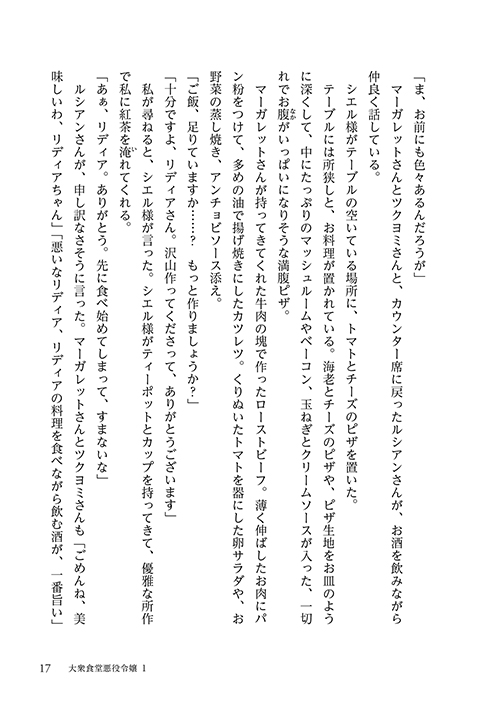 「ま、お前にも色々あるんだろうが」
　マーガレットさんとツクヨミさんと、カウンター席に戻ったルシアンさんが、お酒を飲みながら
仲良く話している。
　シエル様がテーブルの空いている場所に、トマトとチーズのピザを置いた。
　テーブルには所狭しと、お料理が置かれている。海老とチーズのピザや、ピザ生地をお皿のよう
に深くして、中にたっぷりのマッシュルームやベーコン、玉ねぎとクリームソースが入った、一切
れでお腹がいっぱいになりそうな満腹ピザ。
　マーガレットさんが持ってきてくれた牛肉の塊で作ったローストビーフ。薄く伸ばしたお肉にパ
ン粉をつけて、多めの油で揚げ焼きにしたカツレツ。くりぬいたトマトを器にした卵サラダや、お
野菜の蒸し焼き、アンチョビソース添え。
「ご飯、足りていますか……？　もっと作りましょうか？」
「十分ですよ、リディアさん。沢山作ってくださって、ありがとうございます」
　私が尋ねると、シエル様が言った。シエル様がティーポットとカップを持ってきて、優雅な所作
で私に紅茶を淹れてくれる。
「あぁ、リディア。ありがとう。先に食べ始めてしまって、すまないな」
　ルシアンさんが、申し訳なさそうに言った。マーガレットさんとツクヨミさんも「ごめんね、美
味しいわ、リディアちゃん」「悪いなリディア、リディアの料理を食べながら飲む酒が、一番旨い」
17　大衆食堂悪役令嬢 1